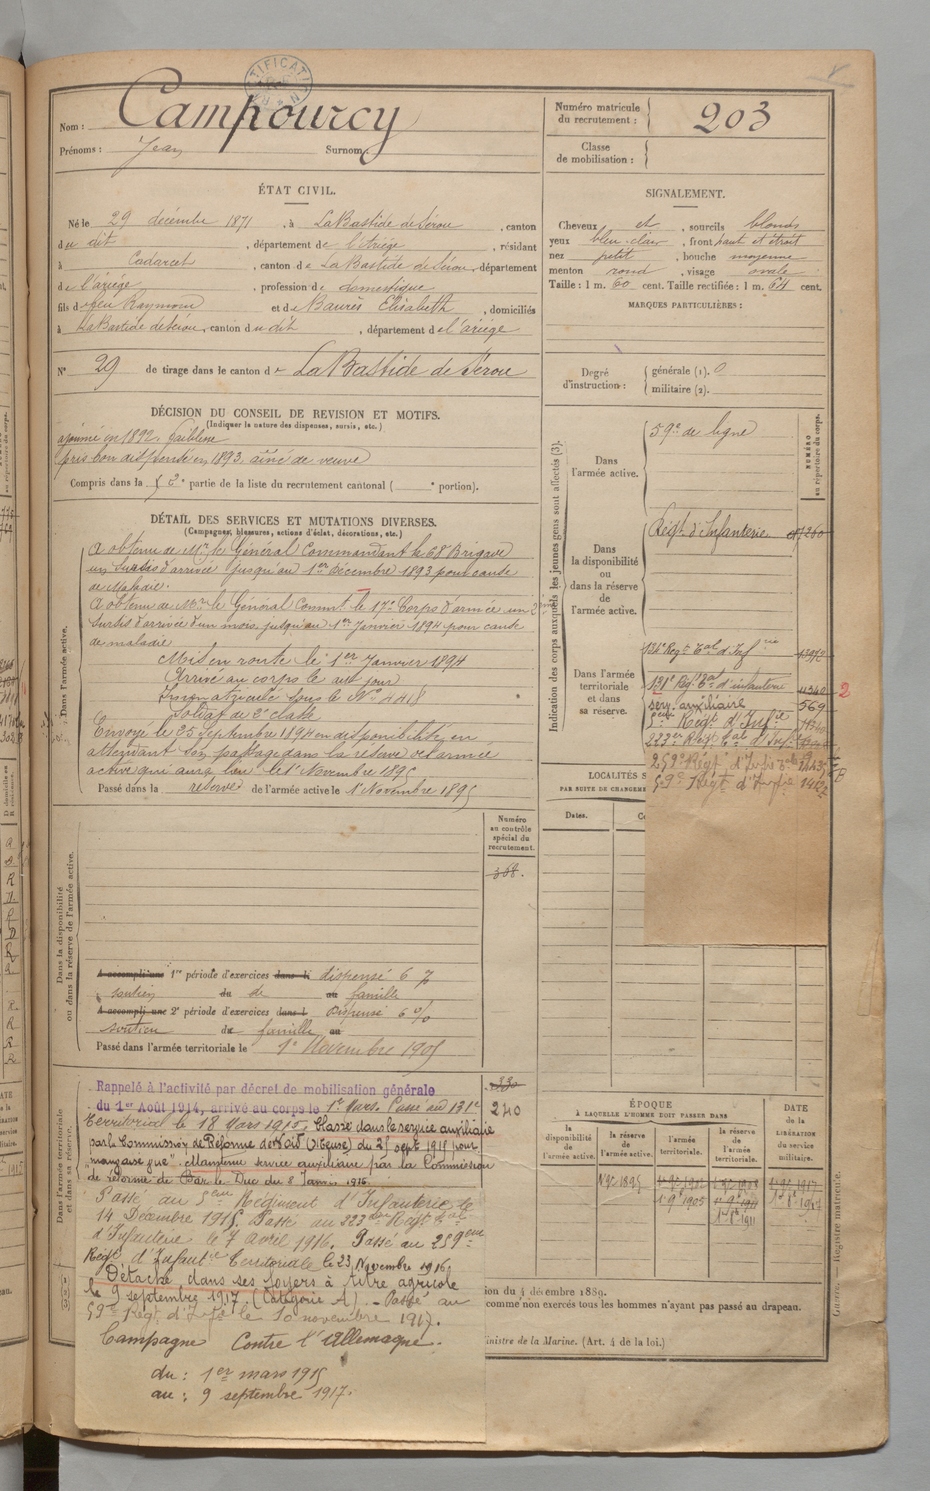 Nom : Campourcy
Prénoms : Jean Surnom :
Numéro matricule du recrutement : 203
Classe de mobilisation :
ÉTAT CIVIL.
Né le 29 décembre 1871, à LaBastide de Sérou, canton
du dit, département de l'Ariège, résidant
à Cadarcet, canton de LaBastide de Sérou, département
de l'ariège, profession de domestique
fils de feu Raymond et de Baurès Elisabeth, domiciliés
à LaBastide de Sérou, canton du dit, département de l'ariège
N° 29 de tirage dans le canton de LaBastide de Sérou
SIGNALEMENT.
Cheveux et, sourcils blonds
yeux bleu-clair, front haut et étroit
nez petit, bouche moyenne
menton rond, visage ovale
Taille : 1 m. 60 cent. Taille rectifiée : 1 m. 64 cent.
MARQUES PARTICULIÈRES :
Degré d'instruction : générale (1). 0
militaire (2).
DÉCISION DU CONSEIL DE REVISION ET MOTIFS.
(Indiquer la nature des dispenses, sursis, etc.)
ajourné en 1892. faiblesse
pris bon dispensé en 1893. aîné de veuve
Compris dans la 2e partie de la liste du recrutement cantonal ( e portion).
DÉTAIL DES SERVICES ET MUTATIONS DIVERSES.
(Campagnes, blessures, actions d'éclat, décorations, etc.)
Dans l'armée active.
A obtenu de Mr le Général Commandant la 68e Brigade
un sursis d'arrivée jusqu'au 1er Décembre 1893 pour cause
de maladie.
A obtenu de Mr le Général Commt le 17e Corps d'armée un 2eme
sursis d'arrivée d'un mois, jusqu'au 1er Janvier 1894 pour cause
de maladie
Mis en route le 1er Janvier 1894
Arrivé au corps le dit jour
Immatriculé sous le No 4418
Soldat de 2e classe
Envoyé le 25 septembre 1894 en disponibilité, en
attendant son passage dans la réserve de l'armée
active qui aura lieu le 1er Novembre 1895
Passé dans la réserve de l'armée active le 1er Novembre 1895
Indication des corps auxquels les jeunes gens sont affectés (3).
NUMÉRO au répertoire du corps.
Dans l'armée active.
59e de ligne
Dans la disponibilité ou dans la réserve de l'armée active.
Régt d'Infanterie
Dans l'armée territoriale et dans sa réserve.
136e Régt Tal d'Infie
131e Régt Tal d'infanterie 4340 2
serv. auxiliaire 569
5eme Régt d'Infie
223er Régt Tal d'Inf.
259e Régt d'Infie Tale
59e Régt d'Infie
LOCALITÉS S
PAR SUITE DE CHANGEME
Dates.
Dans la disponibilité ou dans la réserve de l'armée active.
Numéro au contrôle spécial du recrutement.
368.
A accompli une 1re période d'exercices dans le dispensé 6 %
soutien du de au famille
A accompli une 2e période d'exercices dans l Dispensé 6 %
soutien du famille au
Passé dans l'armée territoriale le 1er Novembre 1905
Dans l'armée territoriale et dans sa réserve.
330
240
Rappelé à l'activité par décret de mobilisation générale
du 1er Août 1914, arrivé au corps le 1er Mars. Passé au 131e
Territorial le 18 Mars 1915. Classé dans le service auxiliaire
par la Commission de Réforme de (Meuse) du 25 sept. 1915 pour
Maintenu service auxiliaire par la Commission
de réforme de Bar-le-Duc du 8 Janvier 1916.
Passé au 5eme Régiment d'Infanterie le
14 Décembre 1915. Passé au 223er Régt Tal
d'Infanterie le 7 avril 1916. Passé au 259eme
Régt d'Infantie Territoriale le 23 Novembre 1916.
Détaché dans ses foyers à titre agricole
le 9 septembre 1917 (Catégorie A). - Passé au
59e Régt d'Infie le 10 novembre 1917.
Campagne Contre l'Allemagne.
du : 1er mars 1915
au : 9 septembre 1917.
ÉPOQUE
À LAQUELLE L'HOMME DOIT PASSER DANS
la disponibilité de l'armée active.
la réserve de l'armée active.
l'armée territoriale.
la réserve de l'armée territoriale.
DATE de la LIBÉRATION du service militaire.
1er 9bre 1895
1er 9bre 1905
ion du 4 décembre 1889.
comme non exercés tous les hommes n'ayant pas passé au drapeau.
inistre de la Marine. (Art. 4 de la loi.)
Registre matricule.